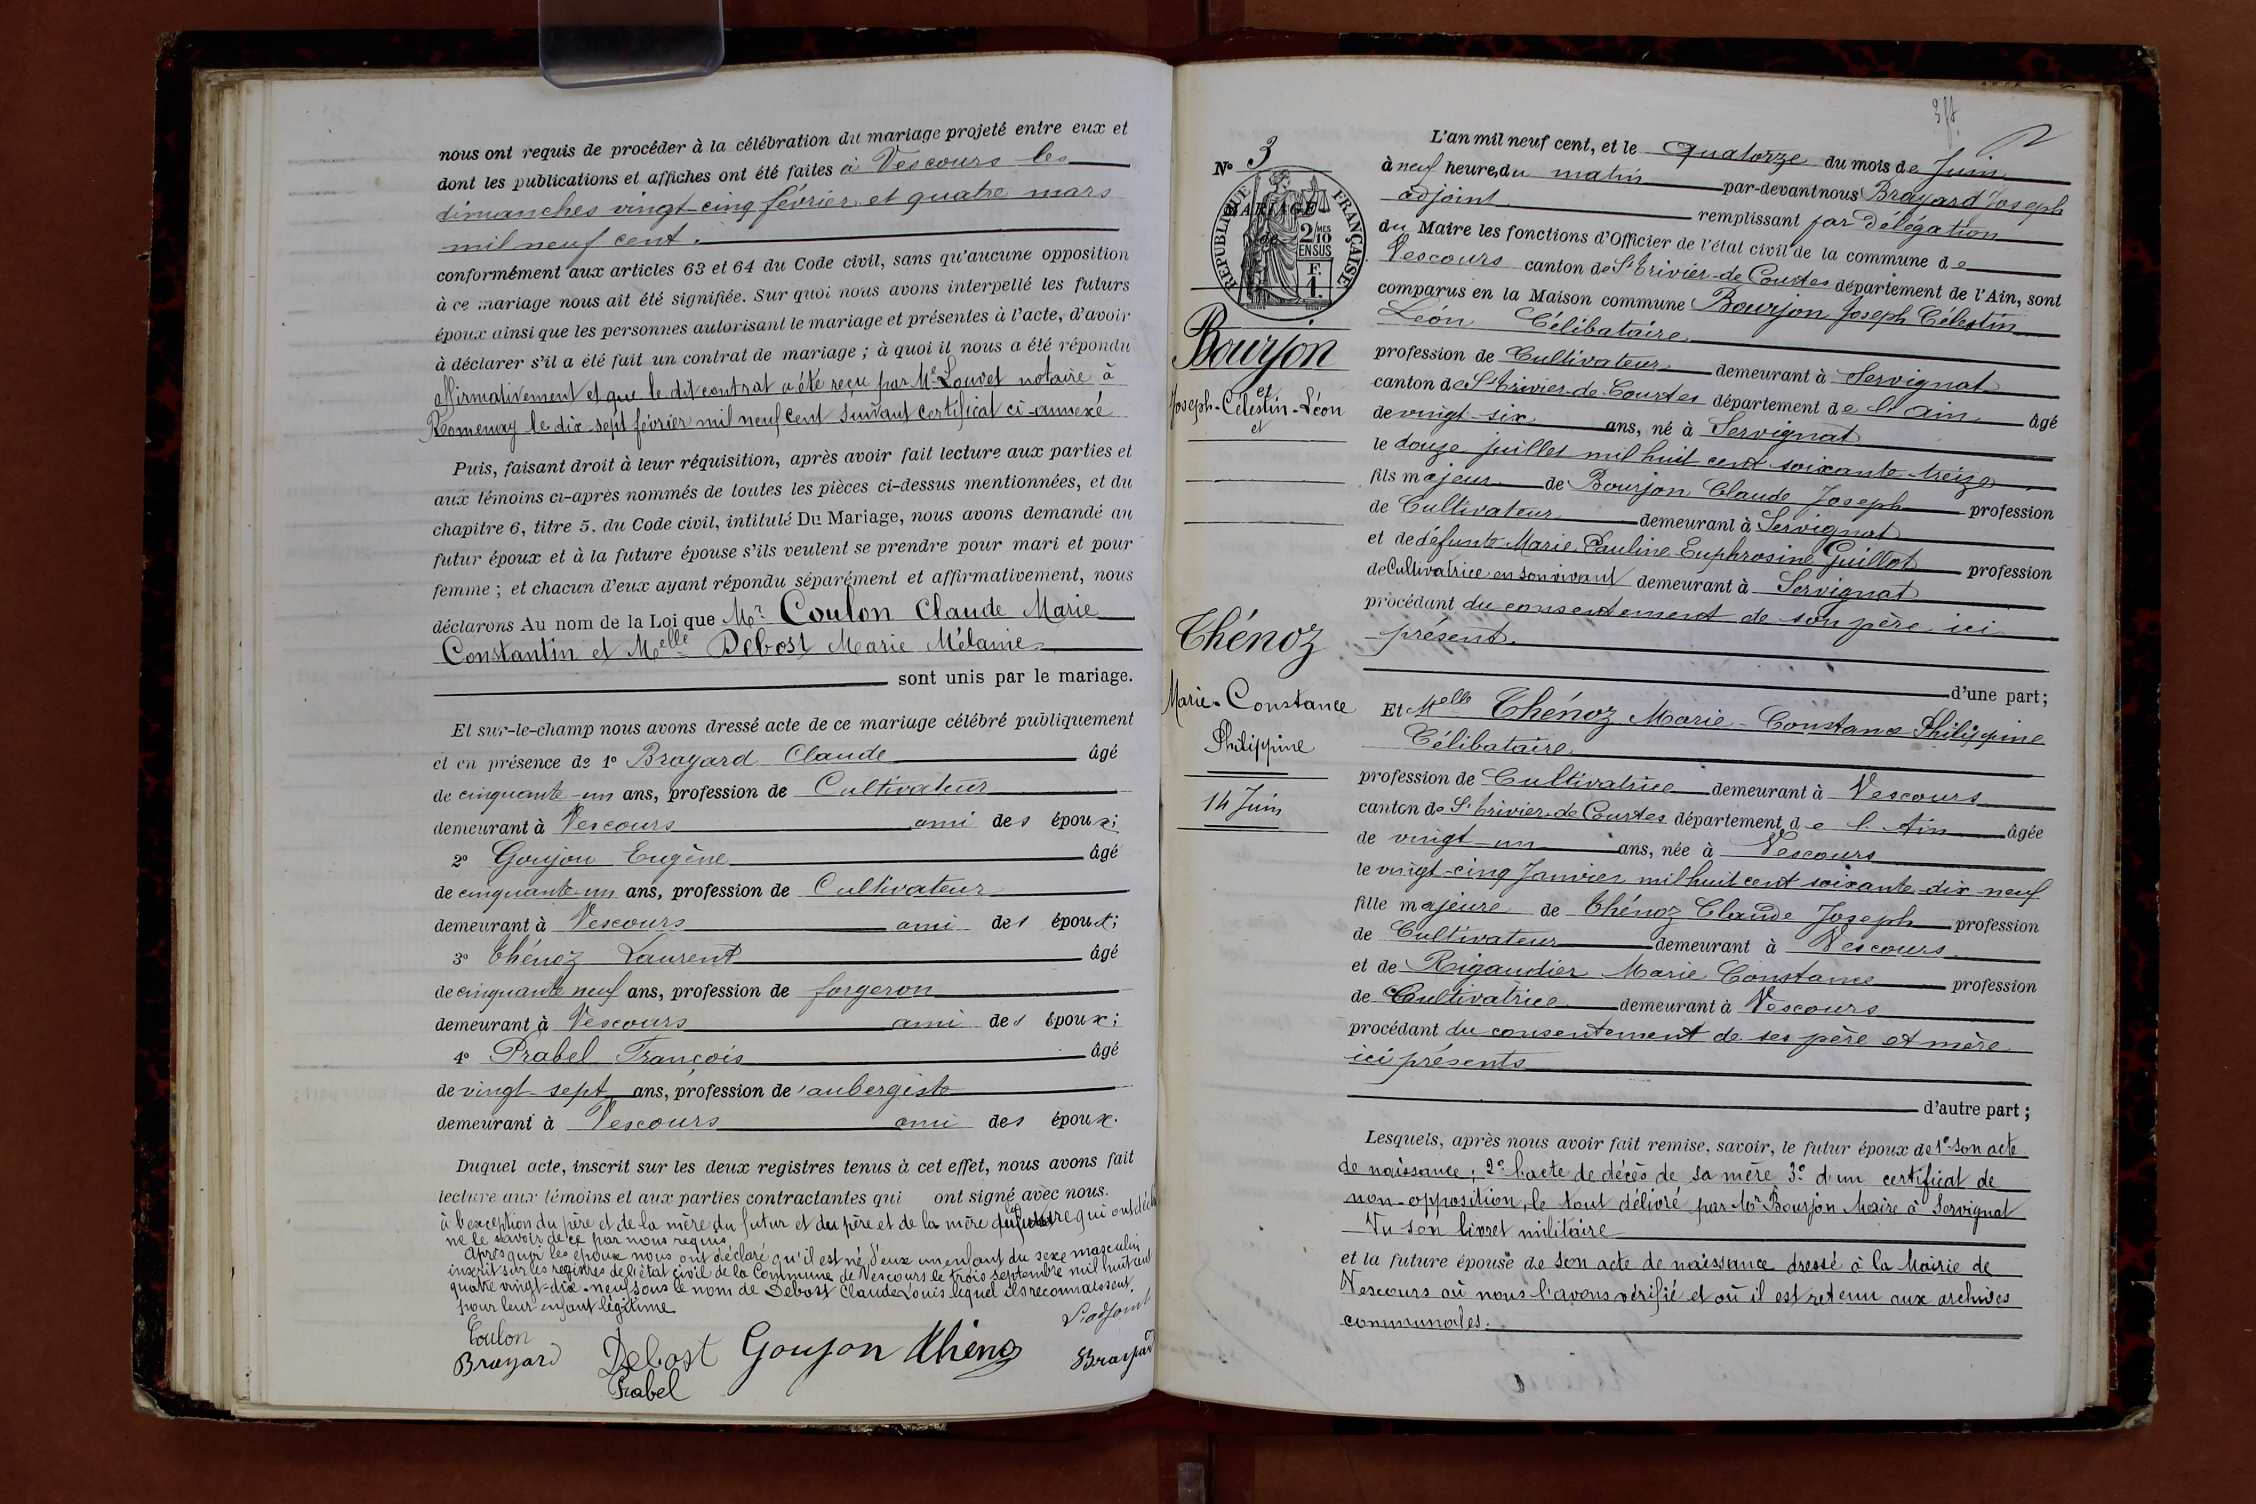 nous ont requis de procéder à la célébration du mariage projeté entre eux et
dont les publications et affiches ont été faites à Vescours les
dimanches vingt-cinq février et quatre mars
mil neuf cent.
conformément aux articles 63 et 64 du Code civil, sans qu'aucune opposition
à ce mariage nous ait été signifiée. Sur quoi nous avons interpellé les futurs
époux ainsi que les personnes autorisant le mariage et présentes à l'acte, d'avoir
à déclarer s'il a été fait un contrat de mariage ; à quoi il nous a été répondu
affirmativement et que le dit contrat a été reçu par Me Louvet notaire à
Romenay le dix-sept février mil neuf cent suivant certificat ci-annexé
Puis, faisant droit à leur réquisition, après avoir fait lecture aux parties et
aux témoins ci-après nommés de toutes les pièces ci-dessus mentionnées, et du
chapitre 6, titre 5, du Code civil, intitulé Du Mariage, nous avons demandé au
futur époux et à la future épouse s'ils veulent se prendre pour mari et pour
femme ; et chacun d'eux ayant répondu séparément et affirmativement, nous
déclarons Au nom de la Loi que Mr Coulon Claude Marie
Constantin et Melle Debost Marie Mélanie
sont unis par le mariage.
Et sur-le-champ nous avons dressé acte de ce mariage célébré publiquement
et en présence de 1° Brayard Claude âgé
de cinquante-un ans, profession de Cultivateur
demeurant à Vescours ami des époux;
2° Goujon Eugène âgé
de cinquante-un ans, profession de Cultivateur
demeurant à Vescours ami des époux;
3° Thénoz Laurent âgé
de cinquante neuf ans, profession de forgeron
demeurant à Vescours ami des époux;
4° Prabel François âgé
de vingt-sept ans, profession de aubergiste
demeurant à Vescours ami des époux.
Duquel acte, inscrit sur les deux registres tenus à cet effet, nous avons fait
lecture aux témoins et aux parties contractantes qui ont signé avec nous.
à l'exception du père et de la mère du futur et du père et de la mère de la future qui ont déclaré
ne le savoir de ce par nous requis
Après quoi les époux nous ont déclaré qu'il est né d'eux un enfant du sexe masculin
inscrit sur les registres de l'état civil de la Commune de Vescours le trois septembre mil huit cent
quatre vingt-dix-neuf sous le nom de Debost Claude Louis lequel ils reconnaissent
pour leur enfant légitime
L'adjoint
Coulon
Brayard Debost Goujon Thénoz Brayard
Prabel
N° 3
MARIAGE
RÉPUBLIQUE FRANÇAISE
2/10 EN SUS
F. 1.
Bourjon
et
Joseph-Célestin-Léon
et
Thénoz
Marie-Constance
Philippine
14 Juin
L'an mil neuf cent, et le quatorze du mois de Juin
à neuf heures du matin par-devant nous Brayard Joseph
adjoint remplissant par délégation
du Maire les fonctions d'Officier de l'état civil de la commune de
Vescours canton de St Trivier-de-Courtes département de l'Ain, sont
comparus en la Maison commune Bourjon Joseph Célestin
Léon Célibataire
profession de Cultivateur demeurant à Servignat
canton de St Trivier-de-Courtes département de l'Ain âgé
de vingt-six ans, né à Servignat
le douze juillet mil huit cent soixante-treize
fils majeur de Bourjon Claude Joseph profession
de Cultivateur demeurant à Servignat
et de défunte Marie Pauline Euphrosine Guillot profession
de Cultivatrice en son vivant demeurant à Servignat
procédant du consentement de son père ici
présent.
d'une part;
Et Melle Thénoz Marie-Constance Philippine
Célibataire
profession de Cultivatrice demeurant à Vescours
canton de St Trivier-de-Courtes département de l'Ain âgée
de vingt-un ans, née à Vescours
le vingt-cinq Janvier mil huit cent soixante-dix-neuf
fille majeure de Thénoz Claude Joseph profession
de Cultivateur demeurant à Vescours
et de Rigaudier Marie Constance profession
de Cultivatrice demeurant à Vescours
procédant du consentement de ses père et mère
ici présents
d'autre part ;
Lesquels, après nous avoir fait remise, savoir, le futur époux de 1° son acte
de naissance; 2° l'acte de décès de sa mère 3° d'un certificat de
non-opposition, le tout délivré par Mr Bourjon Maire à Servignat
Vu son livret militaire
et la future épouse de son acte de naissance dressé à la Mairie de
Vescours où nous l'avons vérifié et où il est retenu aux archives
communales.